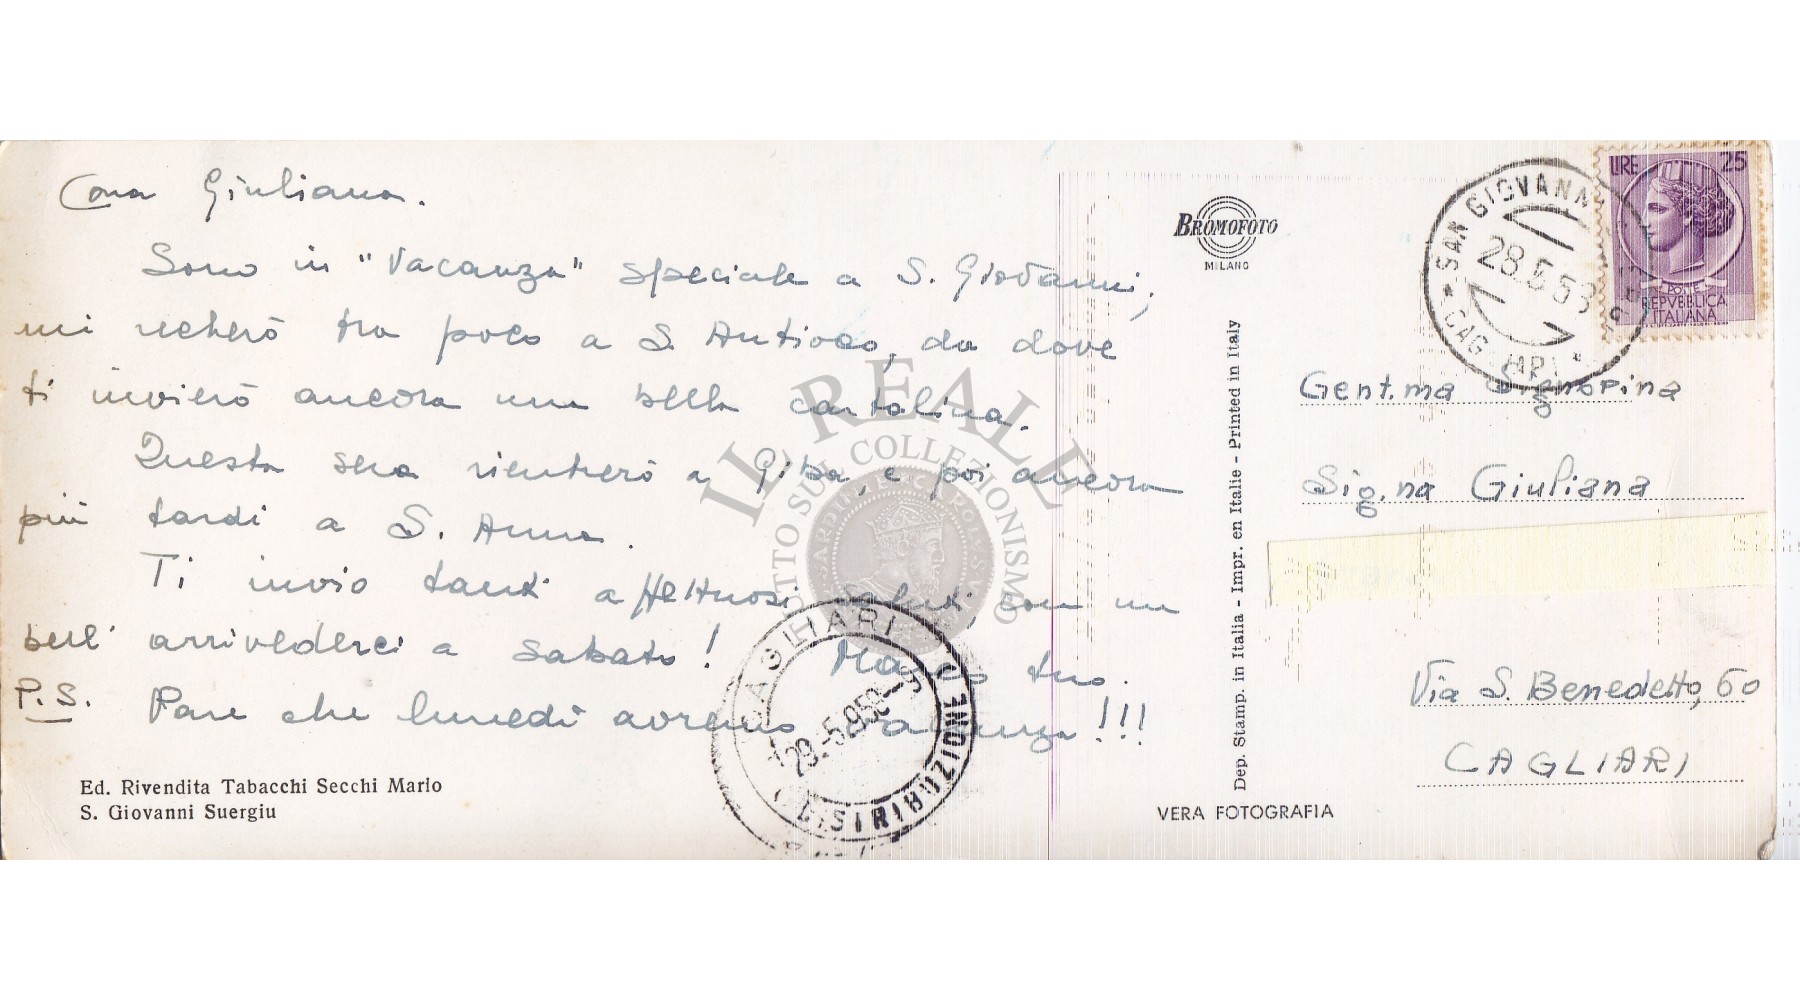 Cara Giuliana.
Sono in "Vacanza" speciale a S. Giovanni,
mi recherò tra poco a S. Antioco, da dove
ti invierò ancora una bella cartolina.
Questa sera rientrerò a Giba, e poi ancora
più tardi a S. Anna.
Ti invio tanti affettuosi saluti, con un
bell' arrivederci a sabato! tuo.
P.S. Pare che lunedì avremo vacanza!!!
Ed. Rivendita Tabacchi Secchi Mario
S. Giovanni Suergiu
CAGLIARI
29.-5.1958-9
DISTRIBUZIONE
IL REALE
TUTTO SUL COLLEZIONISMO
BROMOFOTO
MILANO
Dep. Stamp. in Italia - Impr. en Italie - Printed in Italy
VERA FOTOGRAFIA
SAN GIOVANNI
28.5.58
CAGLIARI
LIRE 25
POSTE
REPVBBLICA
ITALIANA
Gent.ma Signorina
Sig.na Giuliana
Via S. Benedetto, 60
CAGLIARI